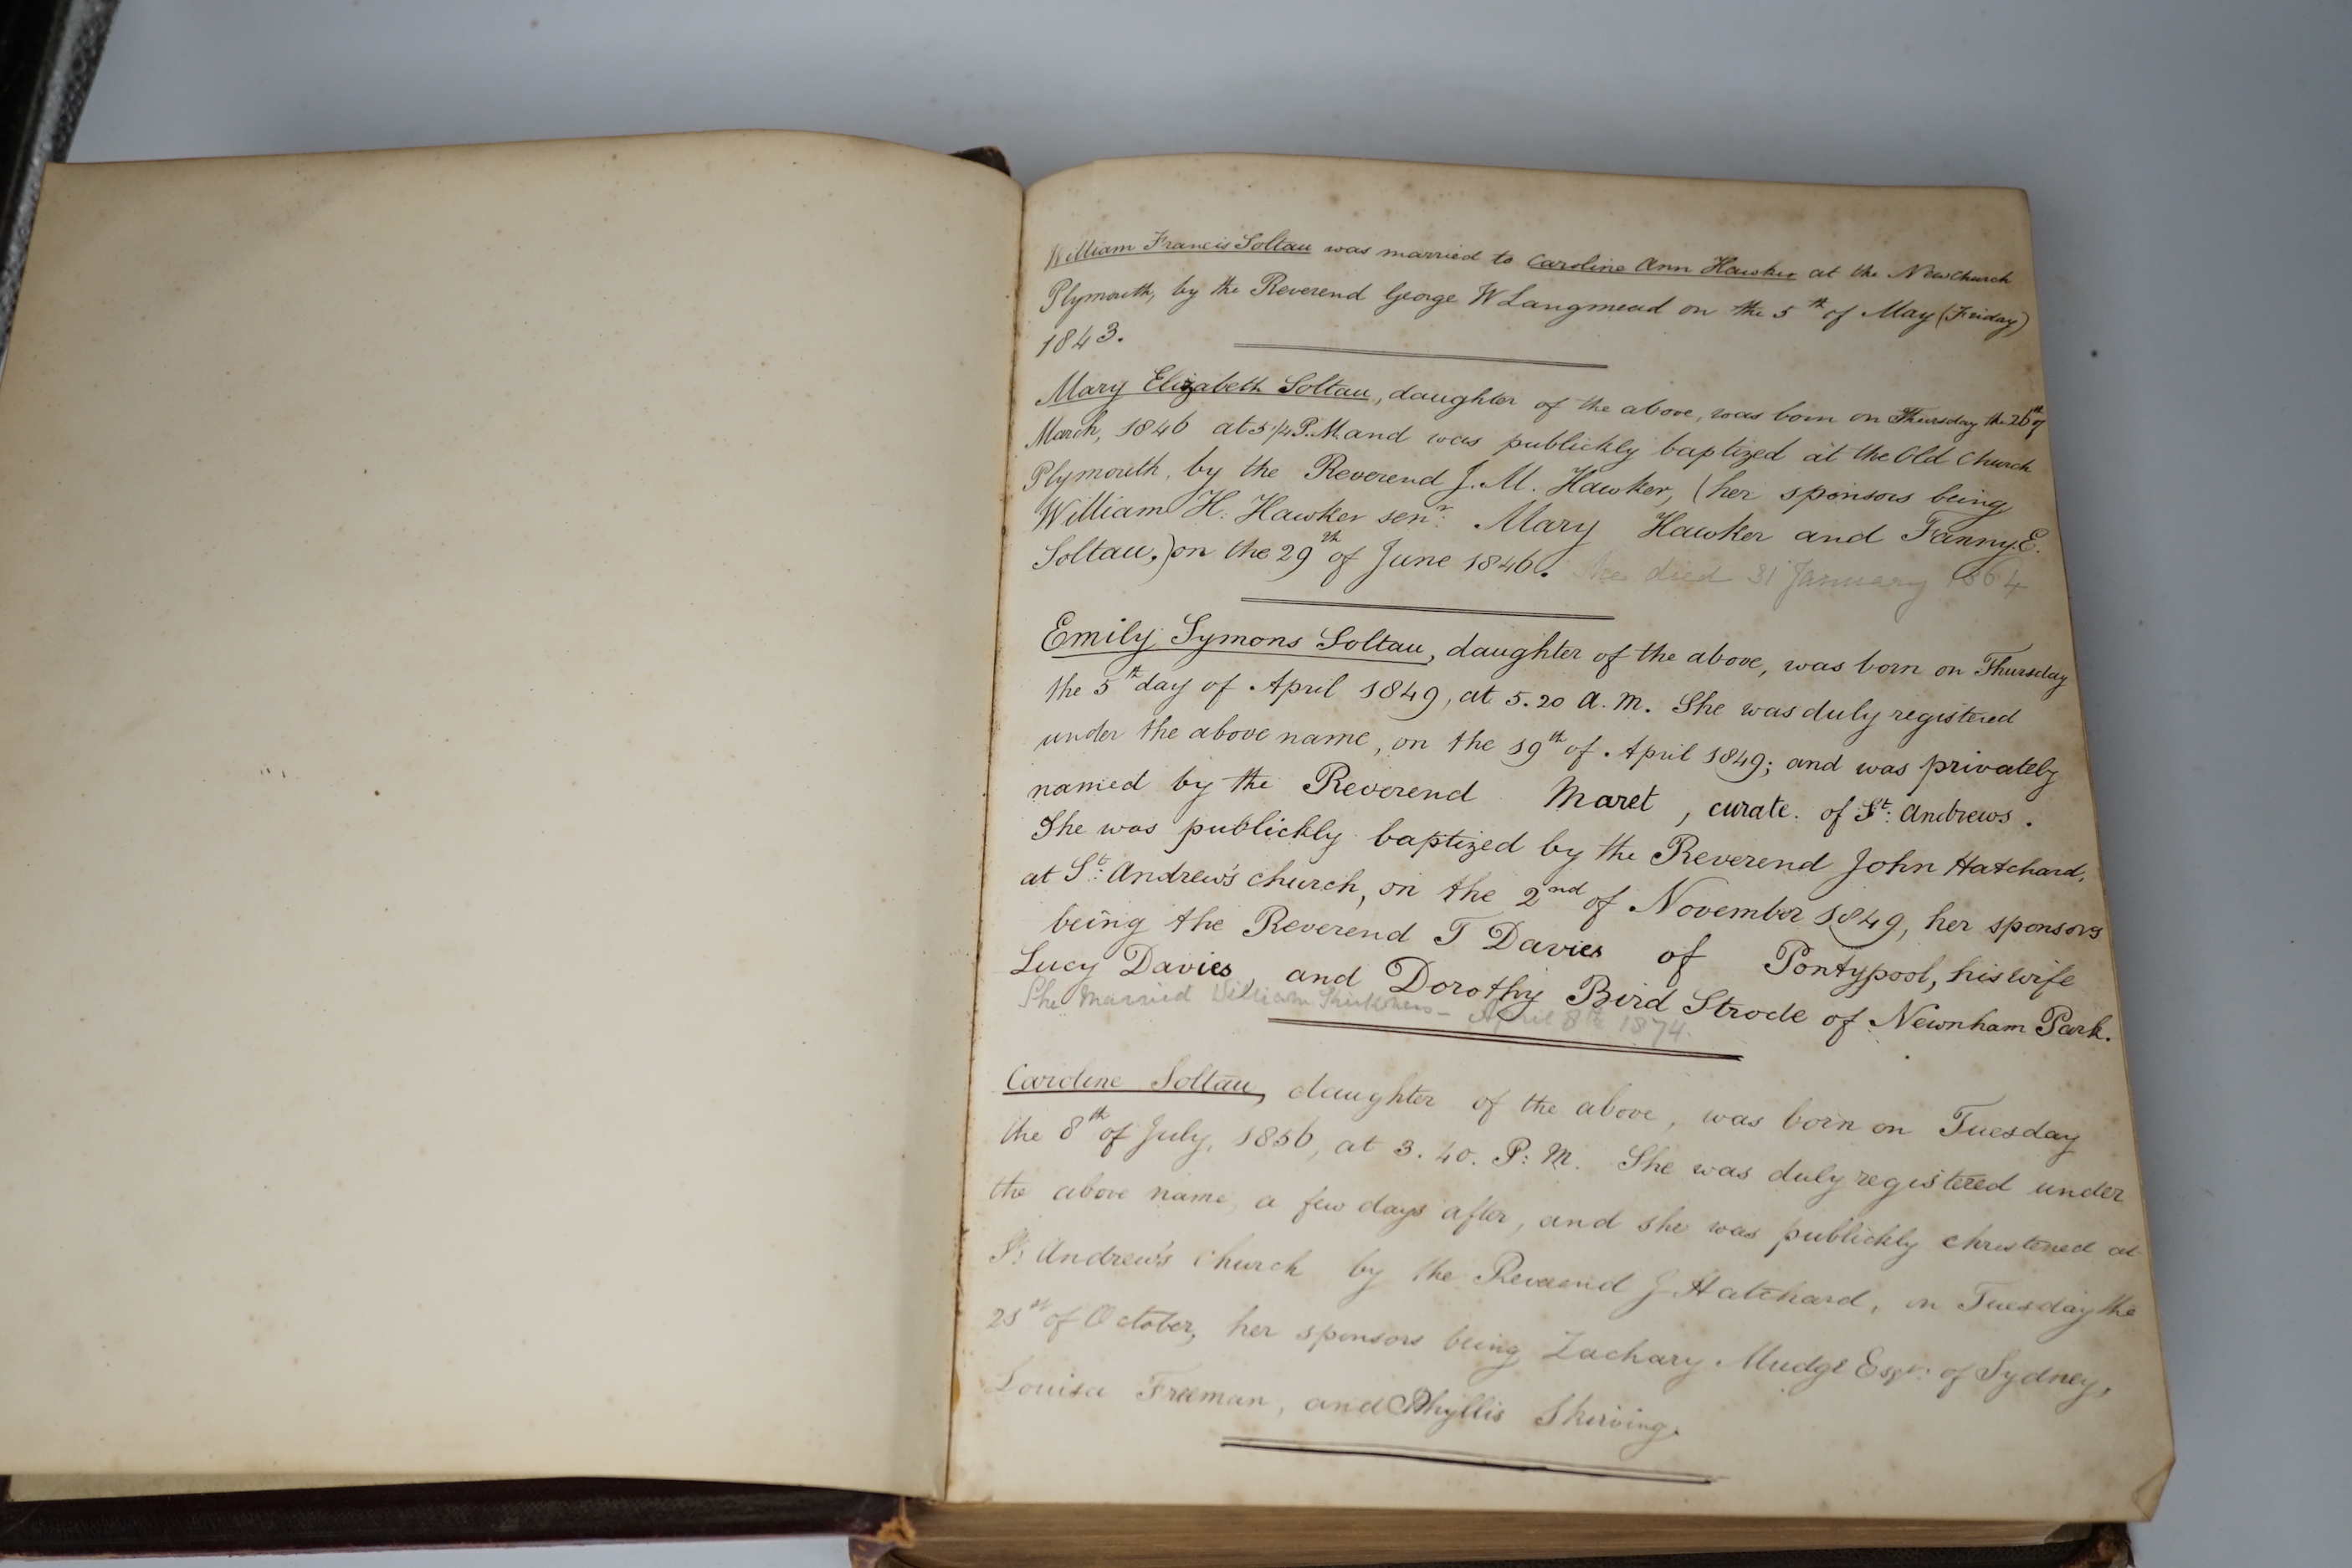 William Francis Soltau was married to Caroline Ann Hawker at the New Church
Plymouth, by the Reverend George W Langmead on the 5th of May (Friday)
1843.
Mary Elizabeth Soltau, daughter of the above, was born on Thursday the 26th of
March, 1846 at 5 1/4 P.M. and was publickly baptized at the Old Church
Plymouth, by the Reverend J. M. Hawker, (her sponsors being
William H. Hawker senr. Mary Hawker and Fanny E.
Soltau,) on the 29th of June 1846. She died 31 January 1864
Emily Symons Soltau, daughter of the above, was born on Thursday
the 5th day of April 1849, at 5.20 A.M. She was duly registered
under the above name, on the 19th of April 1849; and was privately
named by the Reverend Maret, curate of St. Andrews.
She was publickly baptized by the Reverend John Hatchard,
at St. Andrew's church, on the 2nd of November 1849, her sponsors
being the Reverend T Davies of Pontypool, his wife
Lucy Davies, and Dorothy Bird Strode of Newnham Park.
She married William April 8th 1874.
Caroline Soltau, daughter of the above, was born on Tuesday
the 8th of July, 1856, at 3.40. P.M. She was duly registered under
the above name, a few days after, and she was publickly christened at
St. Andrew's Church by the Reverend J Hatchard, on Tuesday the
of October, her sponsors being Zachary Mudge Esqr. of Sydney,
Louisa Freeman, and Phyllis Skirving.